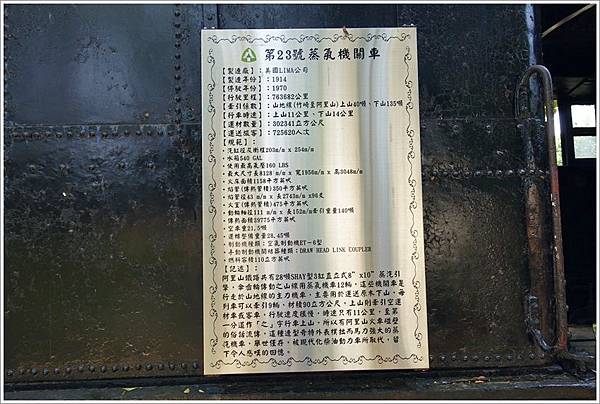 第23號蒸氣機關車
【製造廠】：美國LIMA公司
【製造年份】：1914
【停駛年份】：1970
【行駛里程】：763682公里
【牽引係數】：山地線(竹崎至阿里山)上山40噸、下山135噸
【行車時速】：上山11公里、下山14公里
【運材數量】：302341立方公尺
【運送旅客】：725620人次
【規範】：
·汽缸徑及衝程203m/m x 254m/m
·水箱540 GAL
·使用最高氣壓160 LBS
·最大尺寸長8128 m/m x 寬1956m/m x 高3048m/m
·火床面積1158平方英吋
·焰管(傳熱管積)350平方英呎
·焰管徑43 m/m x 長2743m/m x96支
·火室(傳熱管積)475平方英呎
·動輪軸徑111 m/m x 長152m/m牽引重量140噸
·傳熱面積39775平方英吋
·空車重21.5噸
·運轉整備重量28.45噸
·制動機種類：空氣制動機ET－6型
·手動制動機關結器種類：DRAW HEAD LINK COUPLER
·燃料容積110立方英呎
【記述】：
阿里山鐵路共有28噸SHAY型3缸直立式8" x10"蒸汽引
擎，傘齒輪傳動之山線用蒸氣機車12輛，這些機關車是
行走於山地線的主力機車，主要用於運送原木下山，每
列車可以牽引9輛，材積90立方公尺，上山則牽引空運
材車或客車，行駛速度緩慢，時速只有11公里，至第
一分道作「之」字行車上山，所以有阿里山火車碰壁
的俗話流傳，這種造型奇特外表樸拙而馬力強大的蒸
汽機車，舉世僅存，被現代化柴油動力車所取代，留
下令人感嘆的回憶。